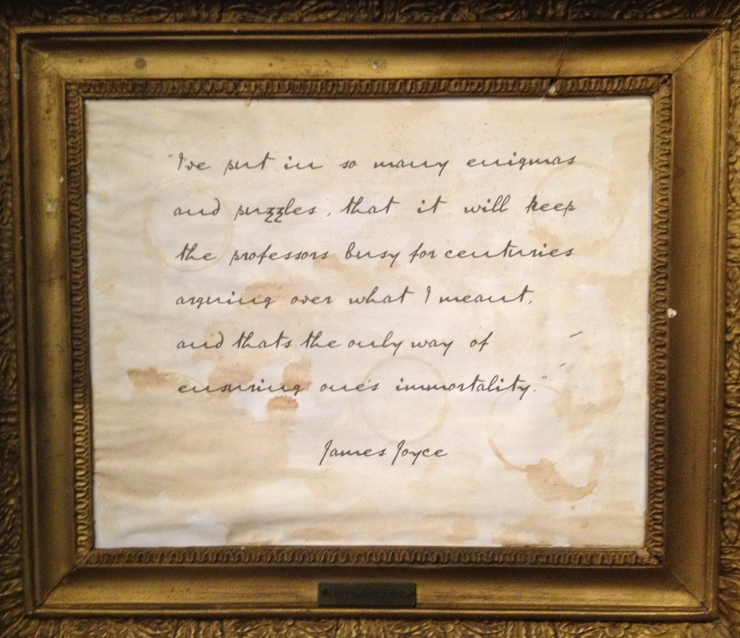 "I've put in so many enigmas
and puzzles, that it will keep
the professors busy for centuries
arguing over what I meant,
and that's the only way of
ensuring one's immortality."
James Joyce